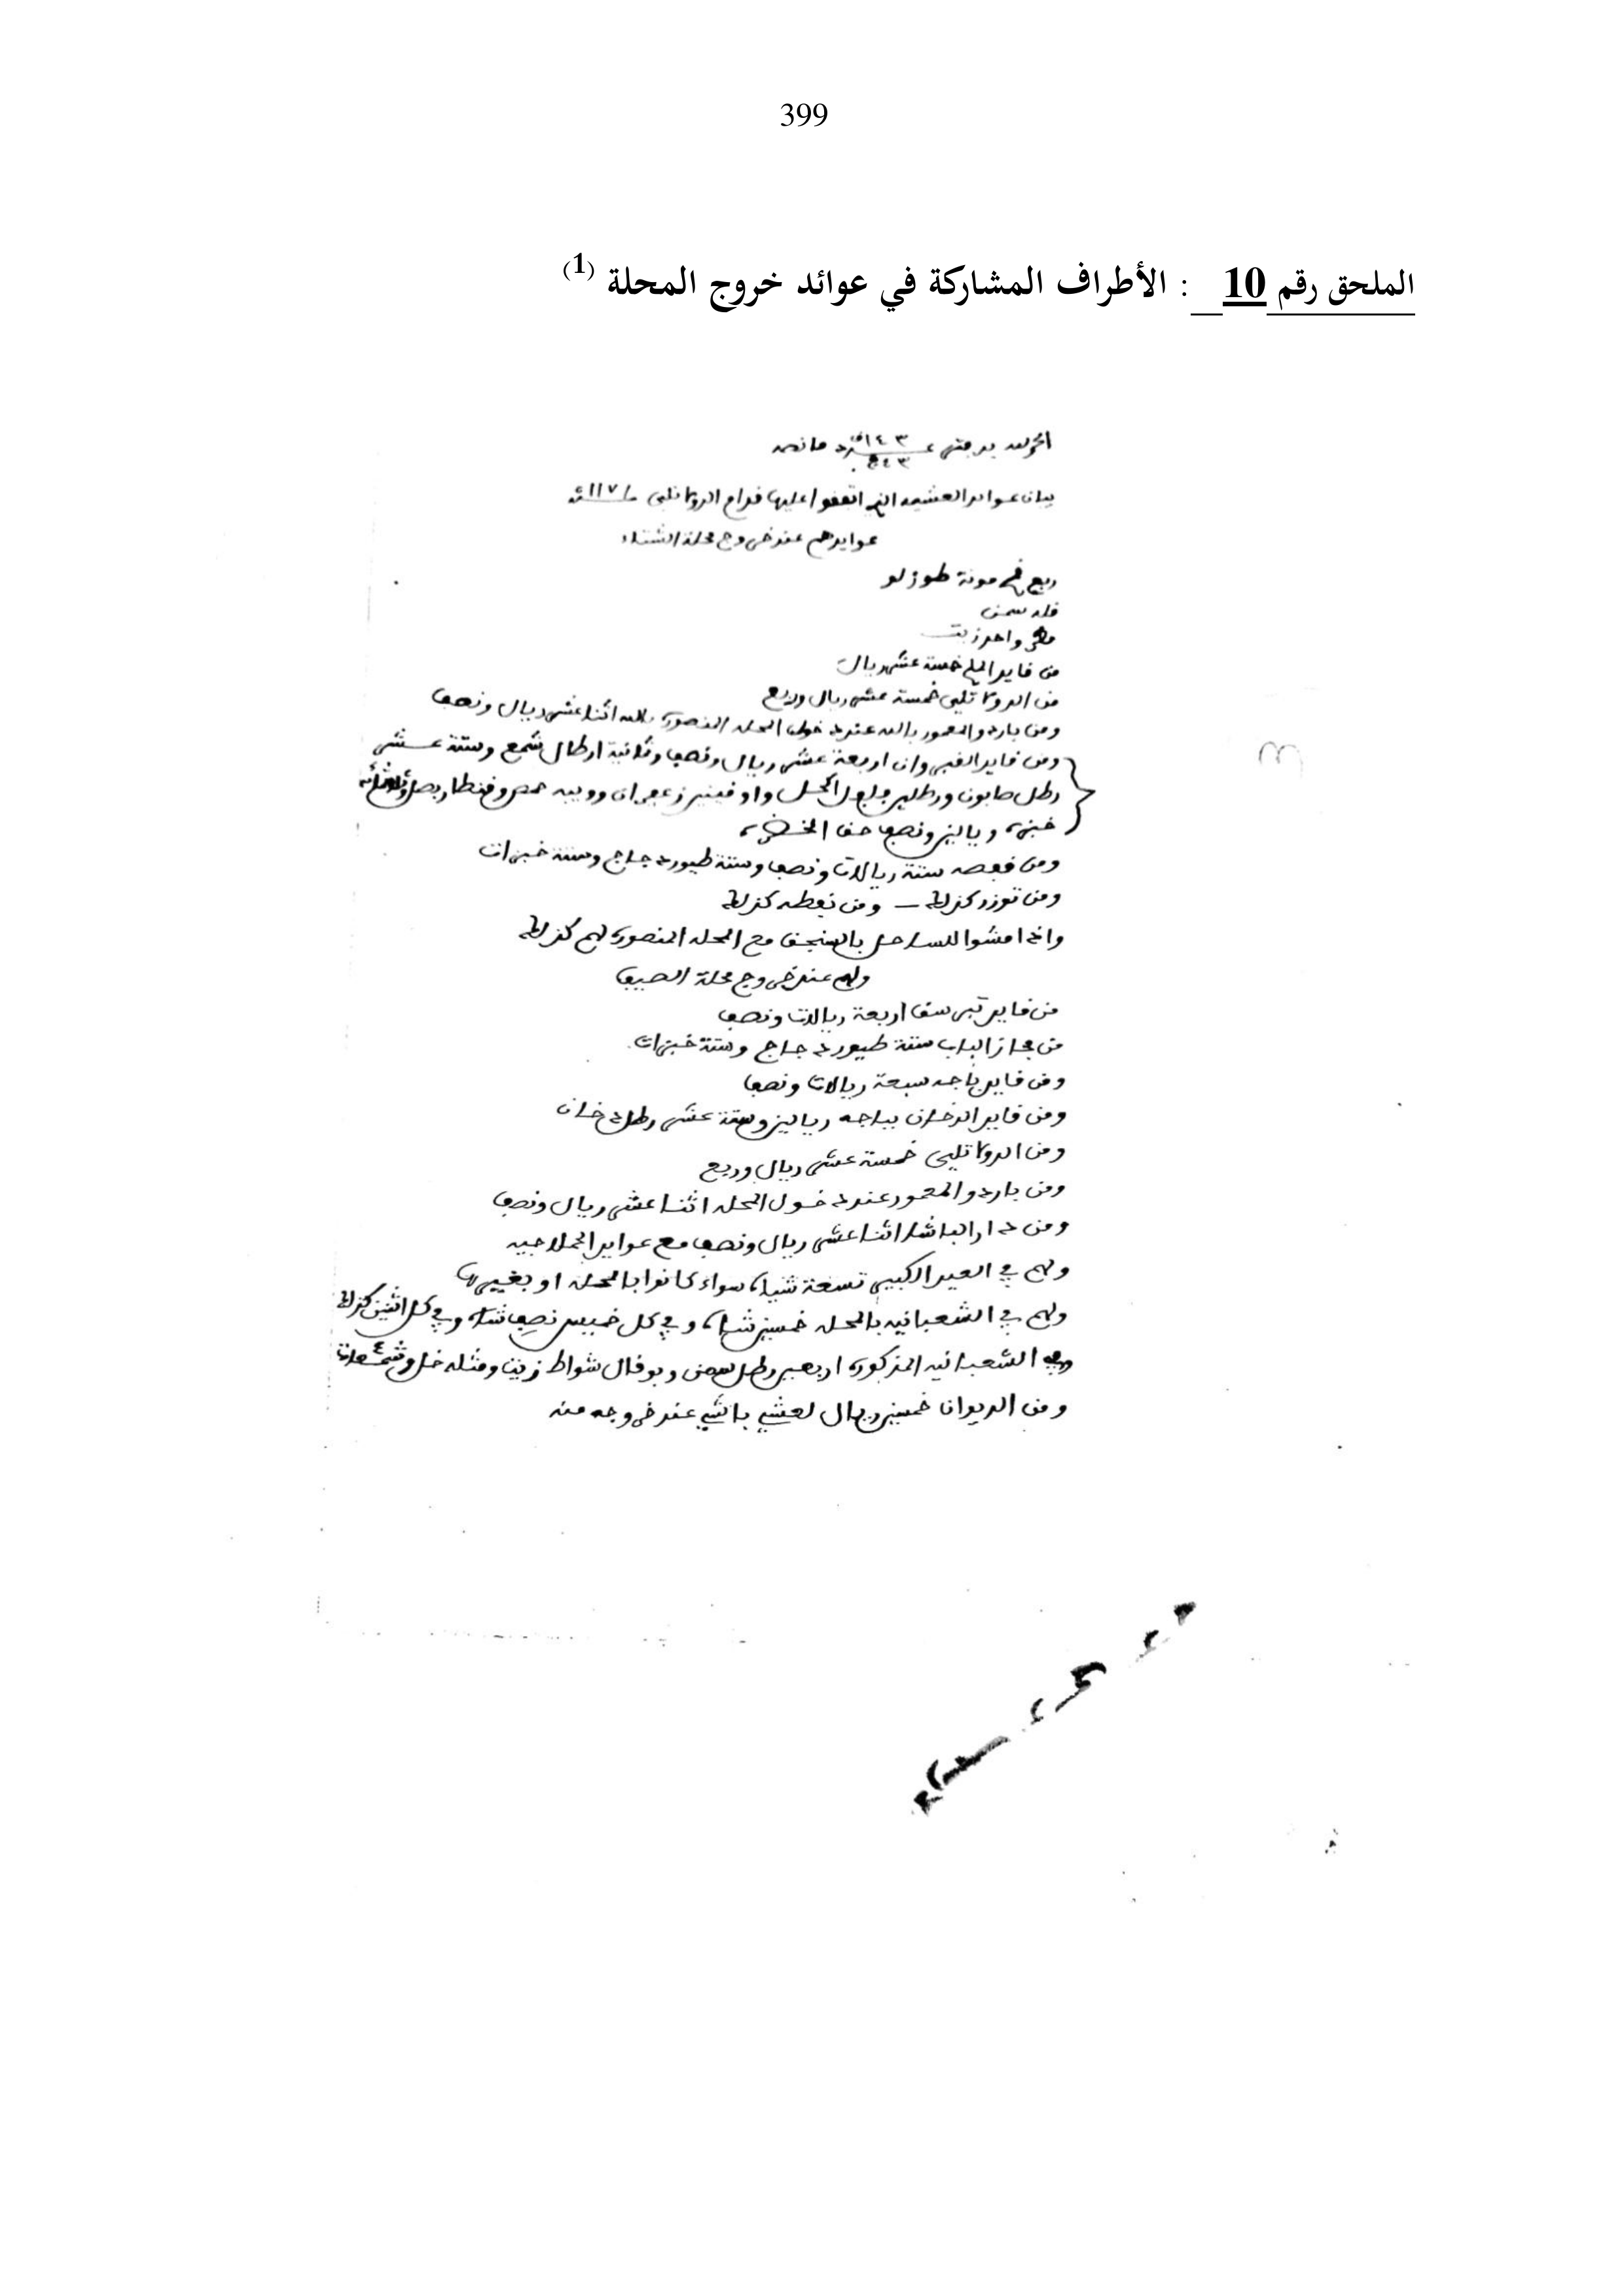 399
الملحق رقم 10 : الأطراف المشاركة في عوائد خروج المحلة (1)
الحمد لله ما نصه
بيان عوايد اتفقوا عليها قدام
عوايدهم عند خروج محلة الشتاء
ربع مونة
قلة سمن
واحد زيت
من قايد خمسة عشر ريال
من خمسة عشر ريال وربع
ومن باردو المعمور بالله عند دخول المحلة المنصورة بالله اثنا عشر ريال ونصف
ومن قايد القيروان اربعة عشر ريال ونصف وثمانية ارطال شمع وستة عشر
رطل صابون ورطلين زعفران وويبه حمص وقنطار بصل
خبزة وريالين ونصف حق الخضرة
ومن قفصه ستة ريالات ونصف وستة طيور دجاج وستة خبزات
ومن توزر كذلك ــ ومن نفطه كذلك
واذا مشوا للساحل بالسنجق مع المحلة المنصورة لهم كذلك
ولهم عند خروج محلة الصيف
من قايد تبرسق اربعة ريالات ونصف
من مجاز الباب ستة طيور دجاج وستة خبزات
ومن قايد باجه سبعة ريالات ونصف
ومن قايد الدخان بباجه ريالين وستة عشر رطل دخان
ومن خمسة عشر ريال وربع
ومن باردو المعمور عند دخول المحلة اثنا عشر ريال ونصف
ومن دار الباشا اثنا عشر ريال ونصف مع عوايد
ولهم في العيد الكبير تسعة شياه سواء كانوا بالمحلة او بغيرها
ولهم في الشعبانيه بالمحلة خمسين شاة وفي كل خميس نصف شاة وفي كل اثنين كذلك
وفي الشعبانيه المذكورة اربعين رطل سمن زيت ومثله خل
ومن الديوان خمسين ريال باشي عند خروجه منه